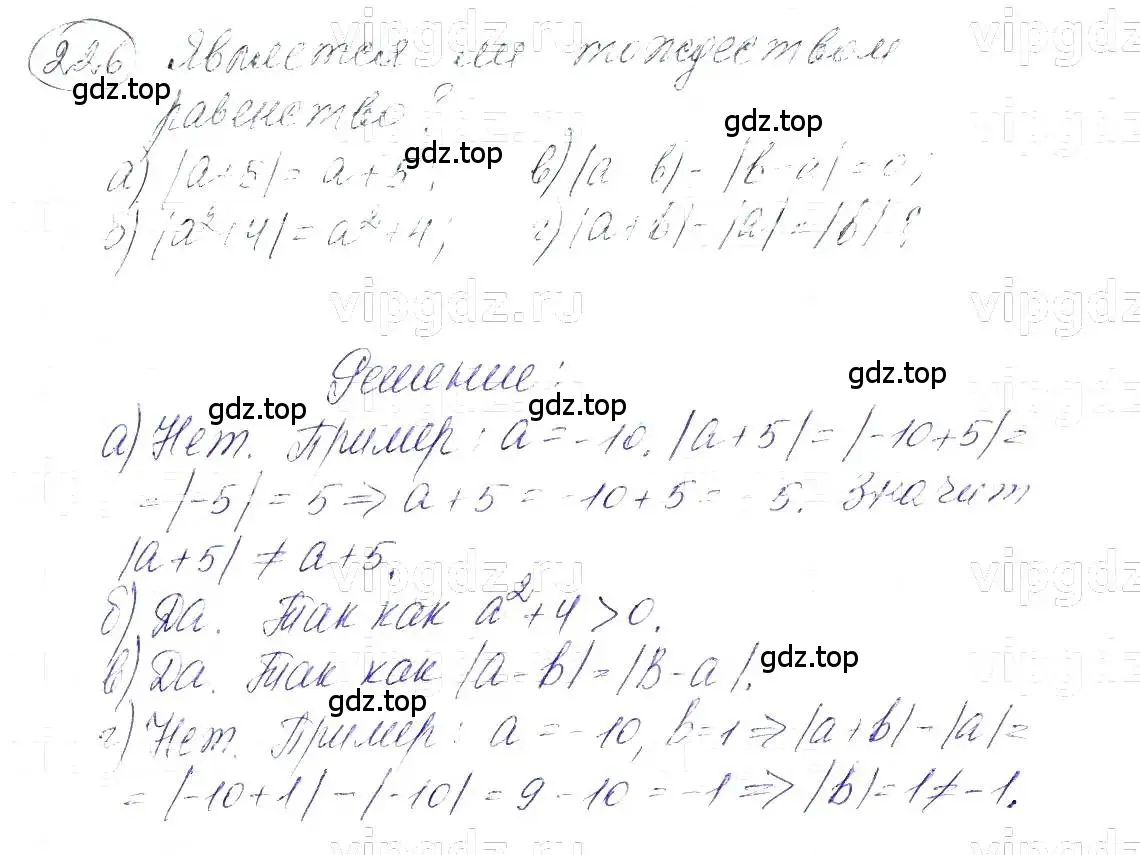 226 Является ли тождеством
равенство?
а) |a+5| = a+5; в) |a-b|-|b-a|=0;
б) |a²+4| = a²+4; г) |a+b|-|a|=|b|?
Решение:
а) Нет. Пример: a=-10. |a+5|=|-10+5|=
=|-5|=5=> a+5=-10+5=-5. Значит
|a+5| ≠ a+5.
б) Да. Так как a²+4>0.
в) Да. Так как |a-b|=|B-a|.
г) Нет. Пример: a=-10, b=1=>|a+b|-|a|=
=|-10+1|-|-10|=9-10=-1=>|b|=1≠-1.
gdz.top
gdz.top
gdz.top
gdz.top
gdz.top
gdz.top
gdz.top
gdz.top
vipgdz.ru
vipgdz.ru
vipgdz.ru
vipgdz.ru